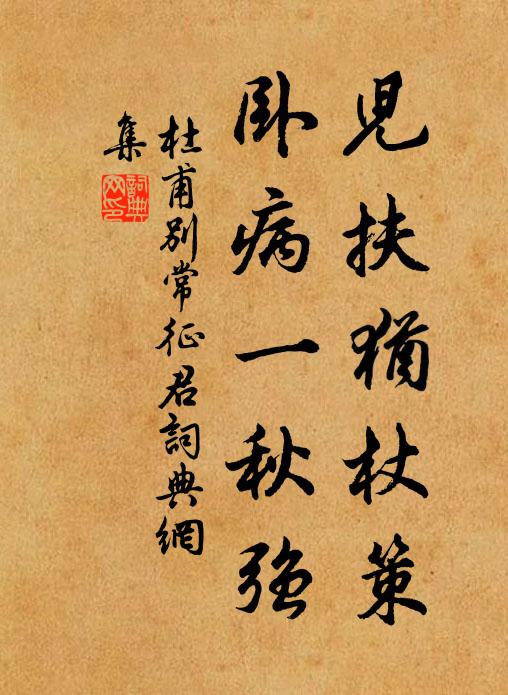 児扶猶杖策
卧病一秋強
杜甫別常征君詞典網
集
詞典
网印